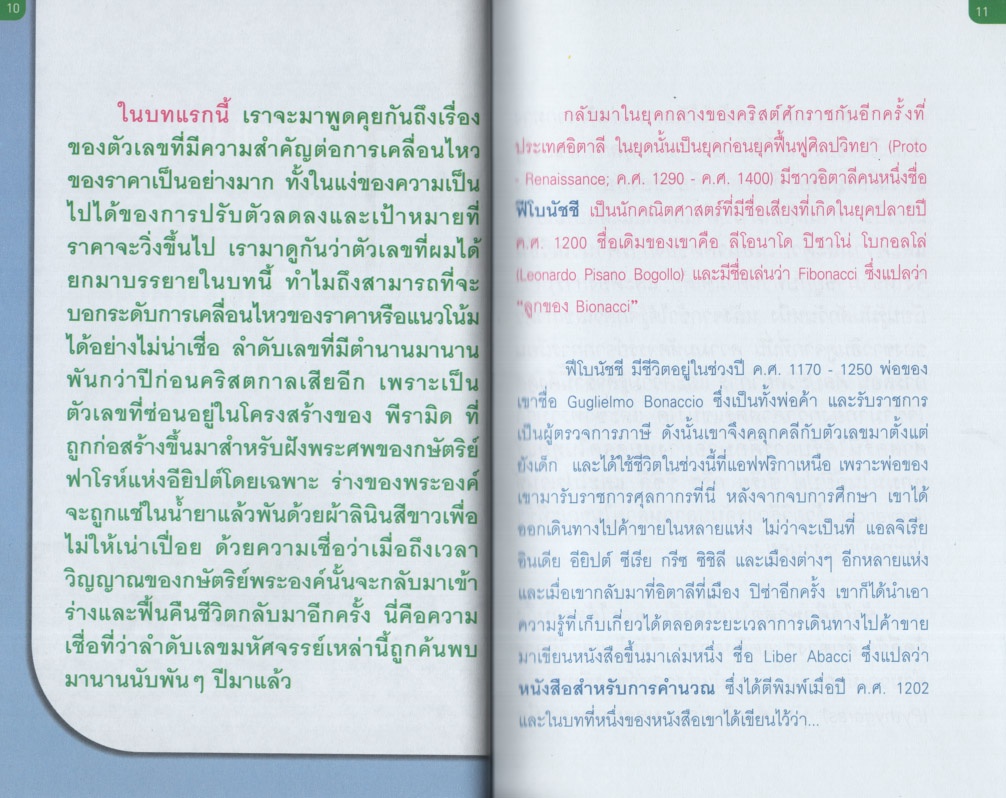 10
ในบทแรกนี้ เราจะมาพูดคุยกันถึงเรื่อง
ของตัวเลขที่มีความสำคัญต่อการเคลื่อนไหว
ของราคาเป็นอย่างมาก ทั้งในแง่ของความเป็น
ไปได้ของการปรับตัวลดลงและเป้าหมายที่
ราคาจะวิ่งขึ้นไป เรามาดูกันว่าตัวเลขที่ผมได้
ยกมาบรรยายในบทนี้ ทำไมถึงสามารถที่จะ
บอกระดับการเคลื่อนไหวของราคาหรือแนวโน้ม
ได้อย่างไม่น่าเชื่อ ลำดับเลขที่มีตำนานมานาน
พันกว่าปีก่อนคริสตกาลเสียอีก เพราะเป็น
ตัวเลขที่ซ่อนอยู่ในโครงสร้างของ พีรามิด ที่
ถูกก่อสร้างขึ้นมาสำหรับฝังพระศพของกษัตริย์
ฟาโรห์แห่งอียิปต์โดยเฉพาะ ร่างของพระองค์
จะถูกแช่ในน้ำยาแล้วพันด้วยผ้าลินินสีขาวเพื่อ
ไม่ให้เน่าเปื่อย ด้วยความเชื่อว่าเมื่อถึงเวลา
วิญญาณของกษัตริย์พระองค์นั้นจะกลับมาเข้า
ร่างและฟื้นคืนชีวิตกลับมาอีกครั้ง นี่คือความ
เชื่อที่ว่าลำดับเลขมหัศจรรย์เหล่านี้ถูกค้นพบ
มานานนับพันๆ ปีมาแล้ว
11
กลับมาในยุคกลางของคริสต์ศักราชกันอีกครั้งที่
ประเทศอิตาลี ในยุดนั้นเป็นยุคก่อนยุคฟื้นฟูศิลปวิทยา (Proto
- Renaissance; ค.ศ. 1290 - ค.ศ. 1400) มีชาวอิตาลีคนหนึ่งชื่อ
ฟีโบนัชชี เป็นนักคณิตศาสตร์ที่มีชื่อเสียงที่เกิดในยุคปลายปี
ค.ศ. 1200 ชื่อเดิมของเขาคือ ลีโอนาโด ปิซาโน่ โบกอลโล่
(Leonardo Pisano Bogollo) และมีชื่อเล่นว่า Fibonacci ซึ่งแปลว่า
"ลูกของ Bionacci"
ฟีโบนัชชี มีชีวิตอยู่ในช่วงปี ค.ศ. 1170 - 1250 พ่อของ
เขาชื่อ Guglielmo Bonaccio ซึ่งเป็นทั้งพ่อค้า และรับราชการ
เป็นผู้ตรวจการภาษี ดังนั้นเขาจึงคลุกคลีกับตัวเลขมาตั้งแต่
ยังเด็ก และได้ใช้ชีวิตในช่วงนี้ที่แอฟฟริกาเหนือ เพราะพ่อของ
เขามารับราชการศุลกากรที่นี่ หลังจากจบการศึกษา เขาได้
ออกเดินทางไปค้าขายในหลายแห่ง ไม่ว่าจะเป็นที่ แอลจิเรีย
อินเดีย อียิปต์ ซีเรีย กรีซ ซิซิลี และเมืองต่างๆ อีกหลายแห่ง
และเมื่อเขากลับมาที่อิตาลีที่เมือง ปิซ่าอีกครั้ง เขาก็ได้นำเอา
ความรู้ที่เก็บเกี่ยวได้ตลอดระยะเวลาการเดินทางไปค้าขาย
มาเขียนหนังสือขึ้นมาเล่มหนึ่ง ชื่อ Liber Abacci ซึ่งแปลว่า
หนังสือสำหรับการคำนวณ ซึ่งได้ตีพิมพ์เมื่อปี ค.ศ. 1202
และในบทที่หนึ่งของหนังสือเขาได้เขียนไว้ว่า...